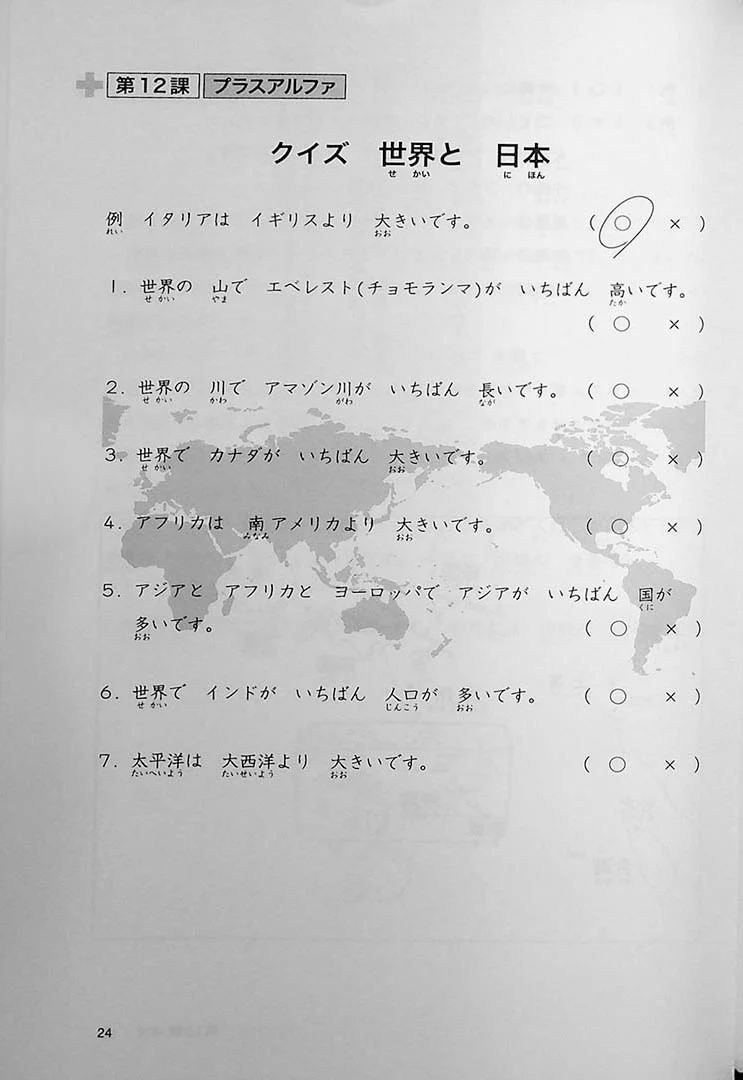 第12課 プラスアルファ
クイズ 世界と 日本
せ かい に ほん
例 イタリアは イギリスより 大きいです。 ( ○ × )
れい おお
1. 世界の 山で エベレスト(チョモランマ)が いちばん 高いです。
せ かい やま たか
( ○ × )
2. 世界の 川で アマゾン川が いちばん 長いです。 ( ○ × )
せ かい かわ がわ なが
3. 世界で カナダが いちばん 大きいです。 ( ○ × )
せ かい おお
4. アフリカは 南アメリカより 大きいです。 ( ○ × )
みなみ おお
5. アジアと アフリカと ヨーロッパで アジアが いちばん 国が
くに
多いです。 ( ○ × )
おお
6. 世界で インドが いちばん 人口が 多いです。 ( ○ × )
せ かい じんこう おお
7. 太平洋は 大西洋より 大きいです。 ( ○ × )
たいへいよう たいせいよう おお
24